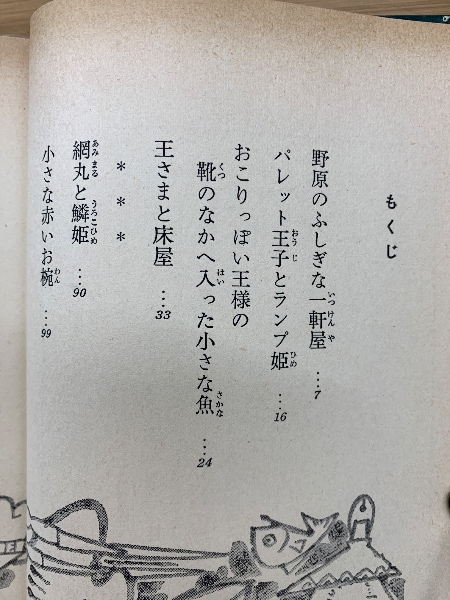 もくじ
野原のふしぎな一軒屋 …7
パレット王子とランプ姫 …16
おこりっぽい王様の
靴のなかへ入った小さな魚 …24
王さまと床屋 …33
＊ ＊ ＊
網丸と鱗姫 …90
小さな赤いお椀 …99